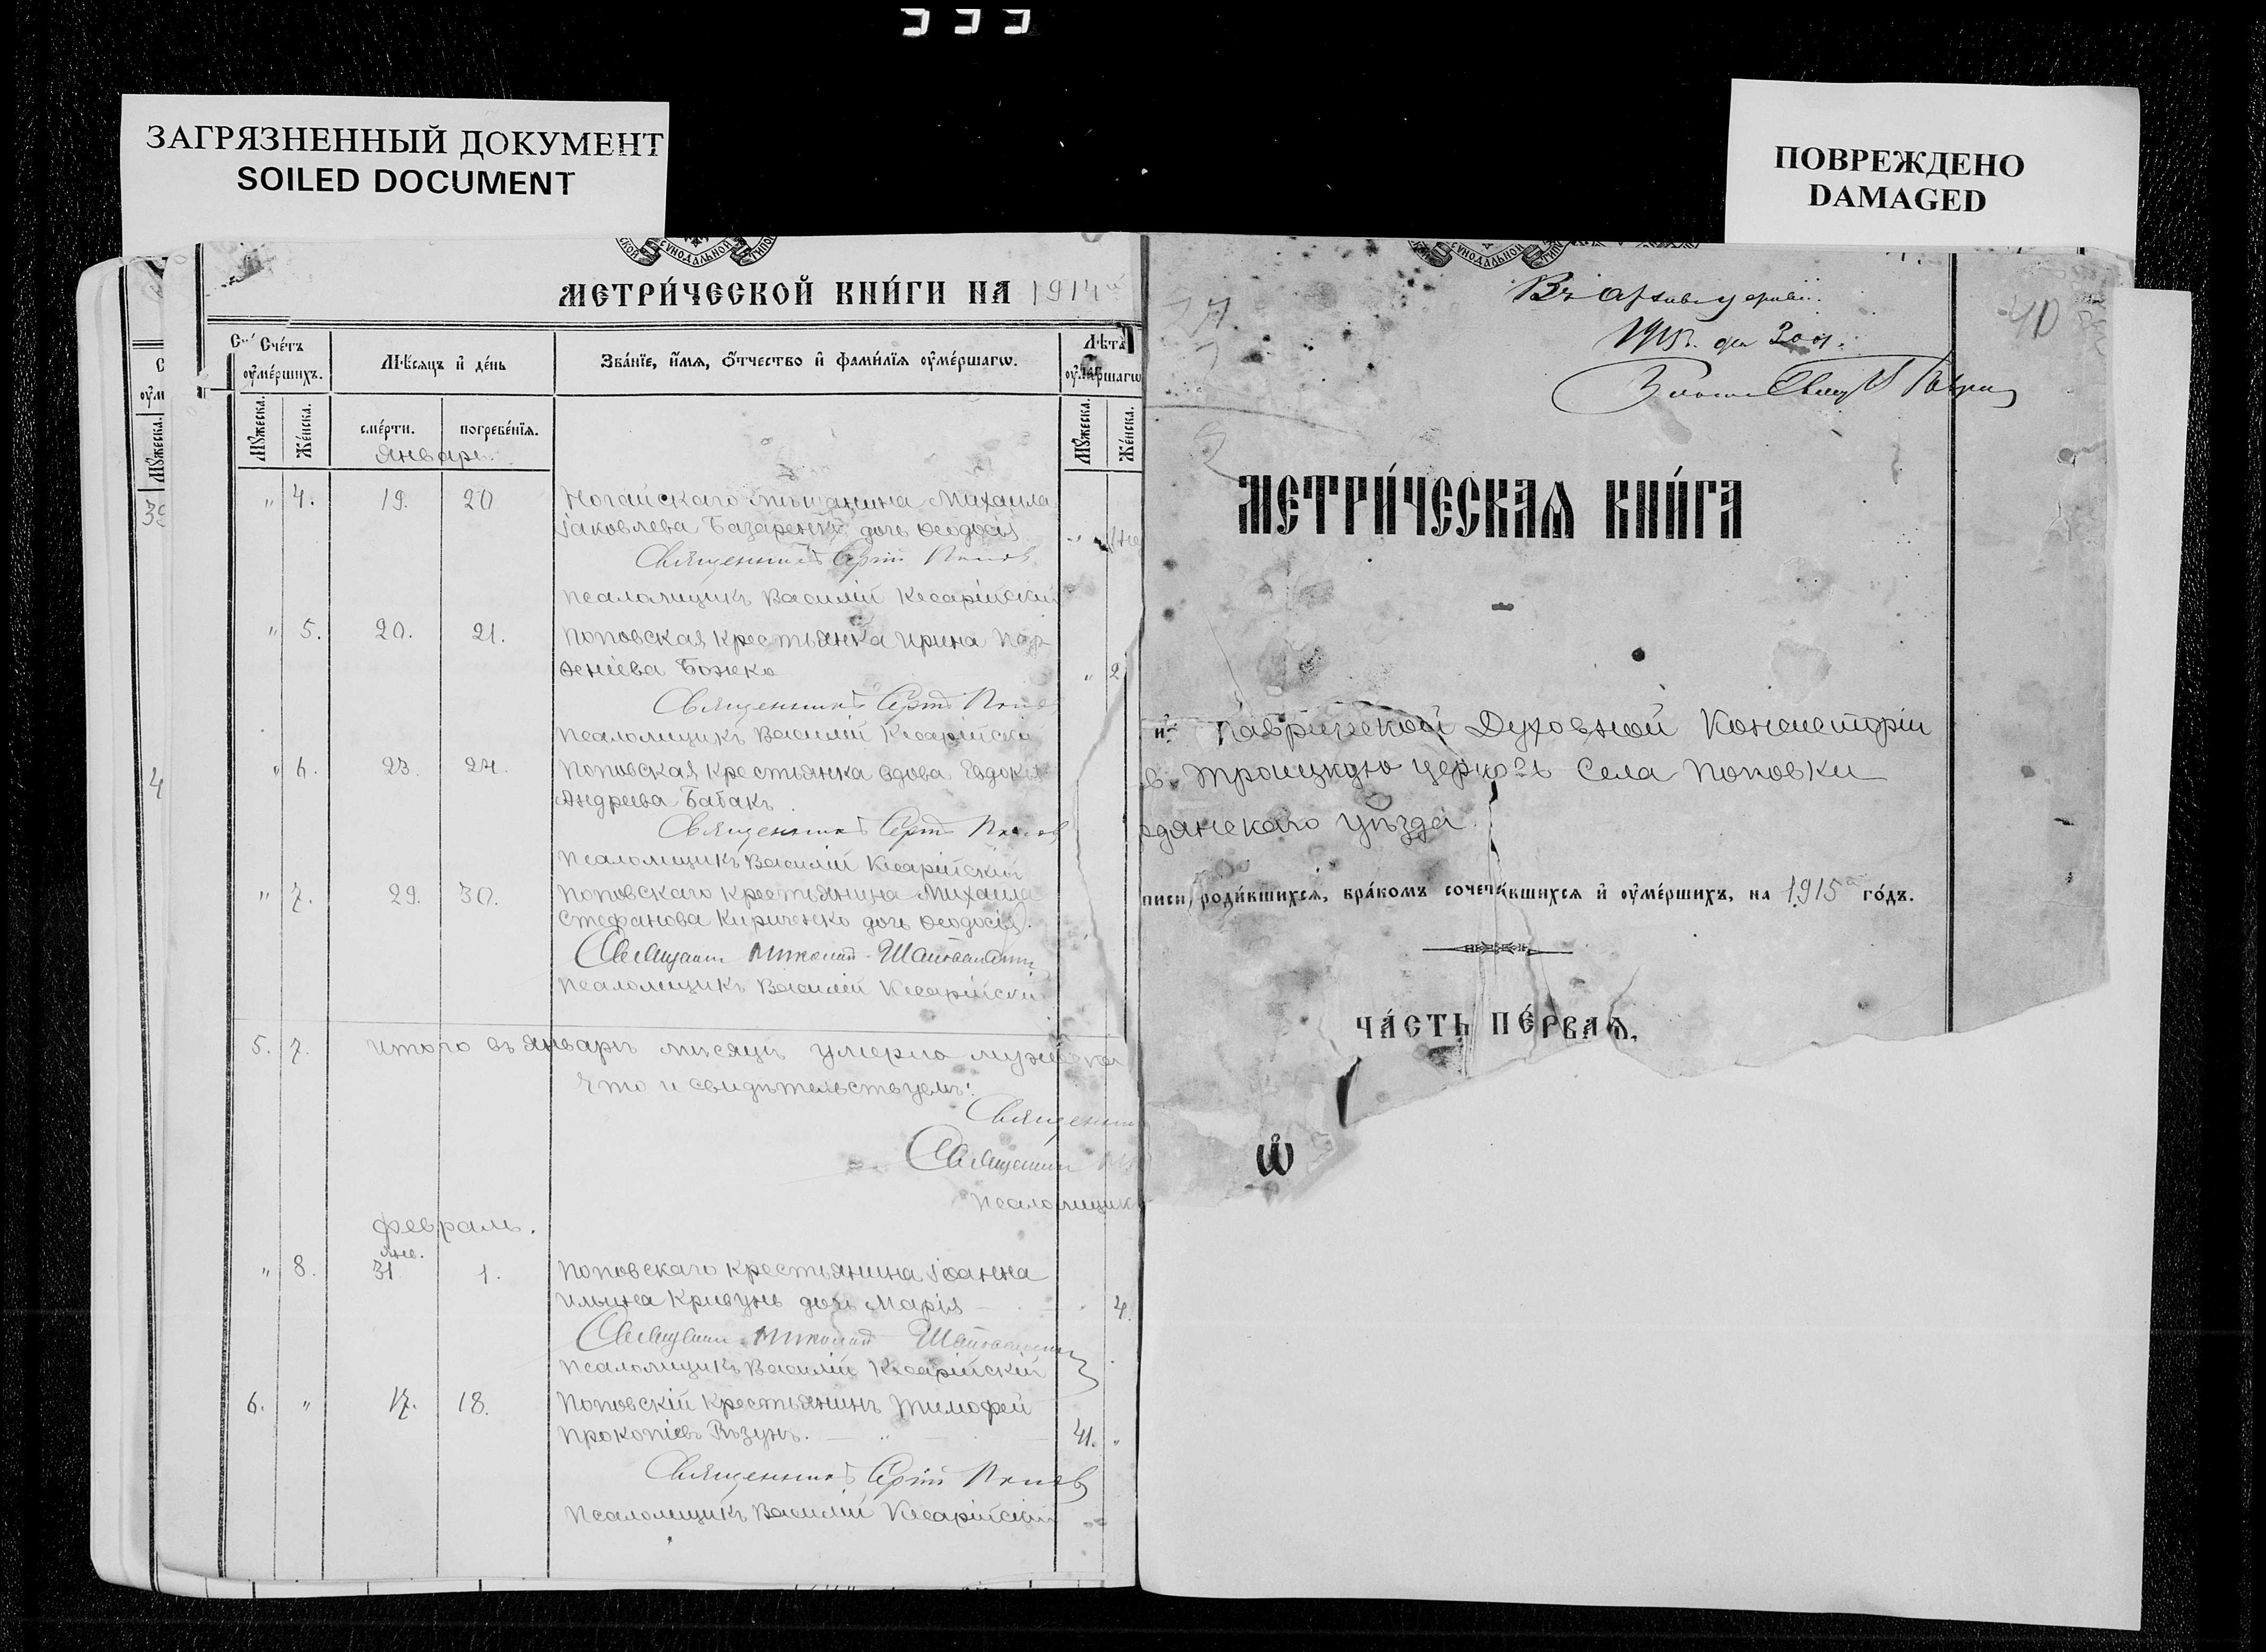 ЗАГРЯЗНЕННЫЙ ДОКУМЕНТ
SOILED DOCUMENT
ПОВРЕЖДЕНО
DAMAGED
СѴНОДАЛЬНОЙ
МЕТРИ́ЧЕСКОЙ КНИ́ГИ НА 1914
Счéтъ оумéршихъ.
Мѣсяцъ и҆ дéнь
Звáнїе, и҆́мя, о҆́тчество и҆ фами́лїя оумéршагѡ.
Лѣта
Мꙋжеска.
Жéнска.
смéрти.
погребéнїя.
Мꙋжеска.
Жéнска.
Январь.
" 4. 19. 20 Ногайскаго мѣщанина Михаила
Іаковлева Базаренко дочь Ѳеодосія
Священникъ Сергій Попов
Псаломщикъ Василій Кесарійскій
" 5. 20. 21. Поповская крестьянка Ирина Пар-
ѳеніева Божко " 2
Священникъ Сергій Попов
Псаломщикъ Василій Кесарійскій
" 6. 23. 24. Поповская крестьянка вдова Евдокія
Андреева Бабакъ
Священникъ Сергій Попов
Псаломщикъ Василій Кесарійскій
" 7. 29. 30. Поповскаго крестьянина Михаила
Стефанова Кириченко дочь Ѳеодосія.
Священникъ Николай
Псаломщикъ Василій Кесарійскій
5. 7. Итого въ Январѣ мѣсяцѣ умерло мужеска
Что и свидѣтельствуемъ:
Священник
Священник
Псаломщикъ
Февраль.
" 8. 31 1. Поповскаго крестьянина Іоанна
Ильина Кривунь дочь Марія 4.
Священникъ Николай
Псаломщикъ Василій Кесарійскій
6. " 17. 18. Поповскій крестьянинъ Тимофей
Прокопіевъ Рѣзунъ. 41. "
Священникъ Сергій Попов
Псаломщикъ Василій Кесарійскій
40
Въ архивъ церкви.
МЕТРИ́ЧЕСКАЯ КНИ́ГА
и҆з Таврической Духовной Консисторіи
въ Троицкую церковь села Поповки
рдянскаго уѣзда
писи роди́вшихся, брáкомъ сочетáвшихся и҆ оумéршихъ, на 1915 гóдъ.
ЧÁСТЬ ПÉРВАЯ,
Ѡ